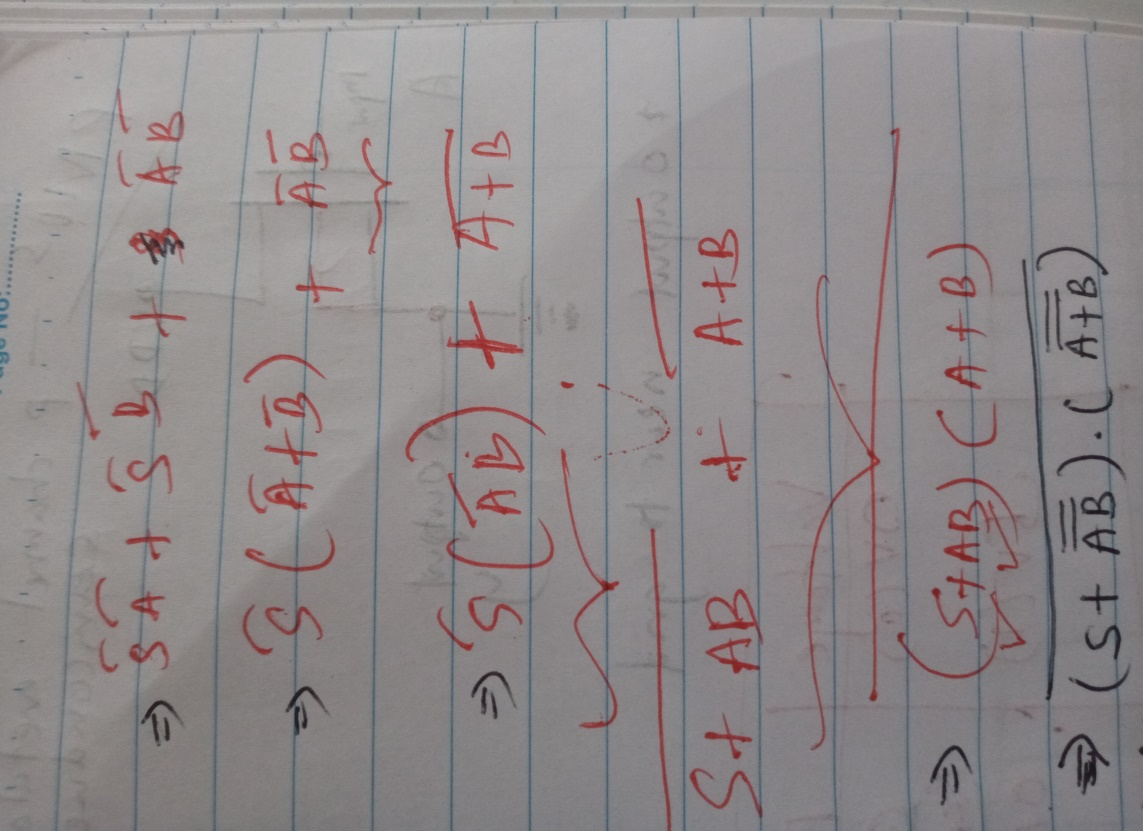 ⇒ S̅A̅ + S̅B̅ + A̅B̅
⇒ S̅(A̅+B̅) + A̅B̅
⇒ S̅(A̅B̅) + A̅+̅B̅
S̅+̅ ̅A̅B̅ + A̅+̅B̅
⇒ (S+AB)(A+B)
⇒ (S+A̿B̿).(A̿+̿B̿)